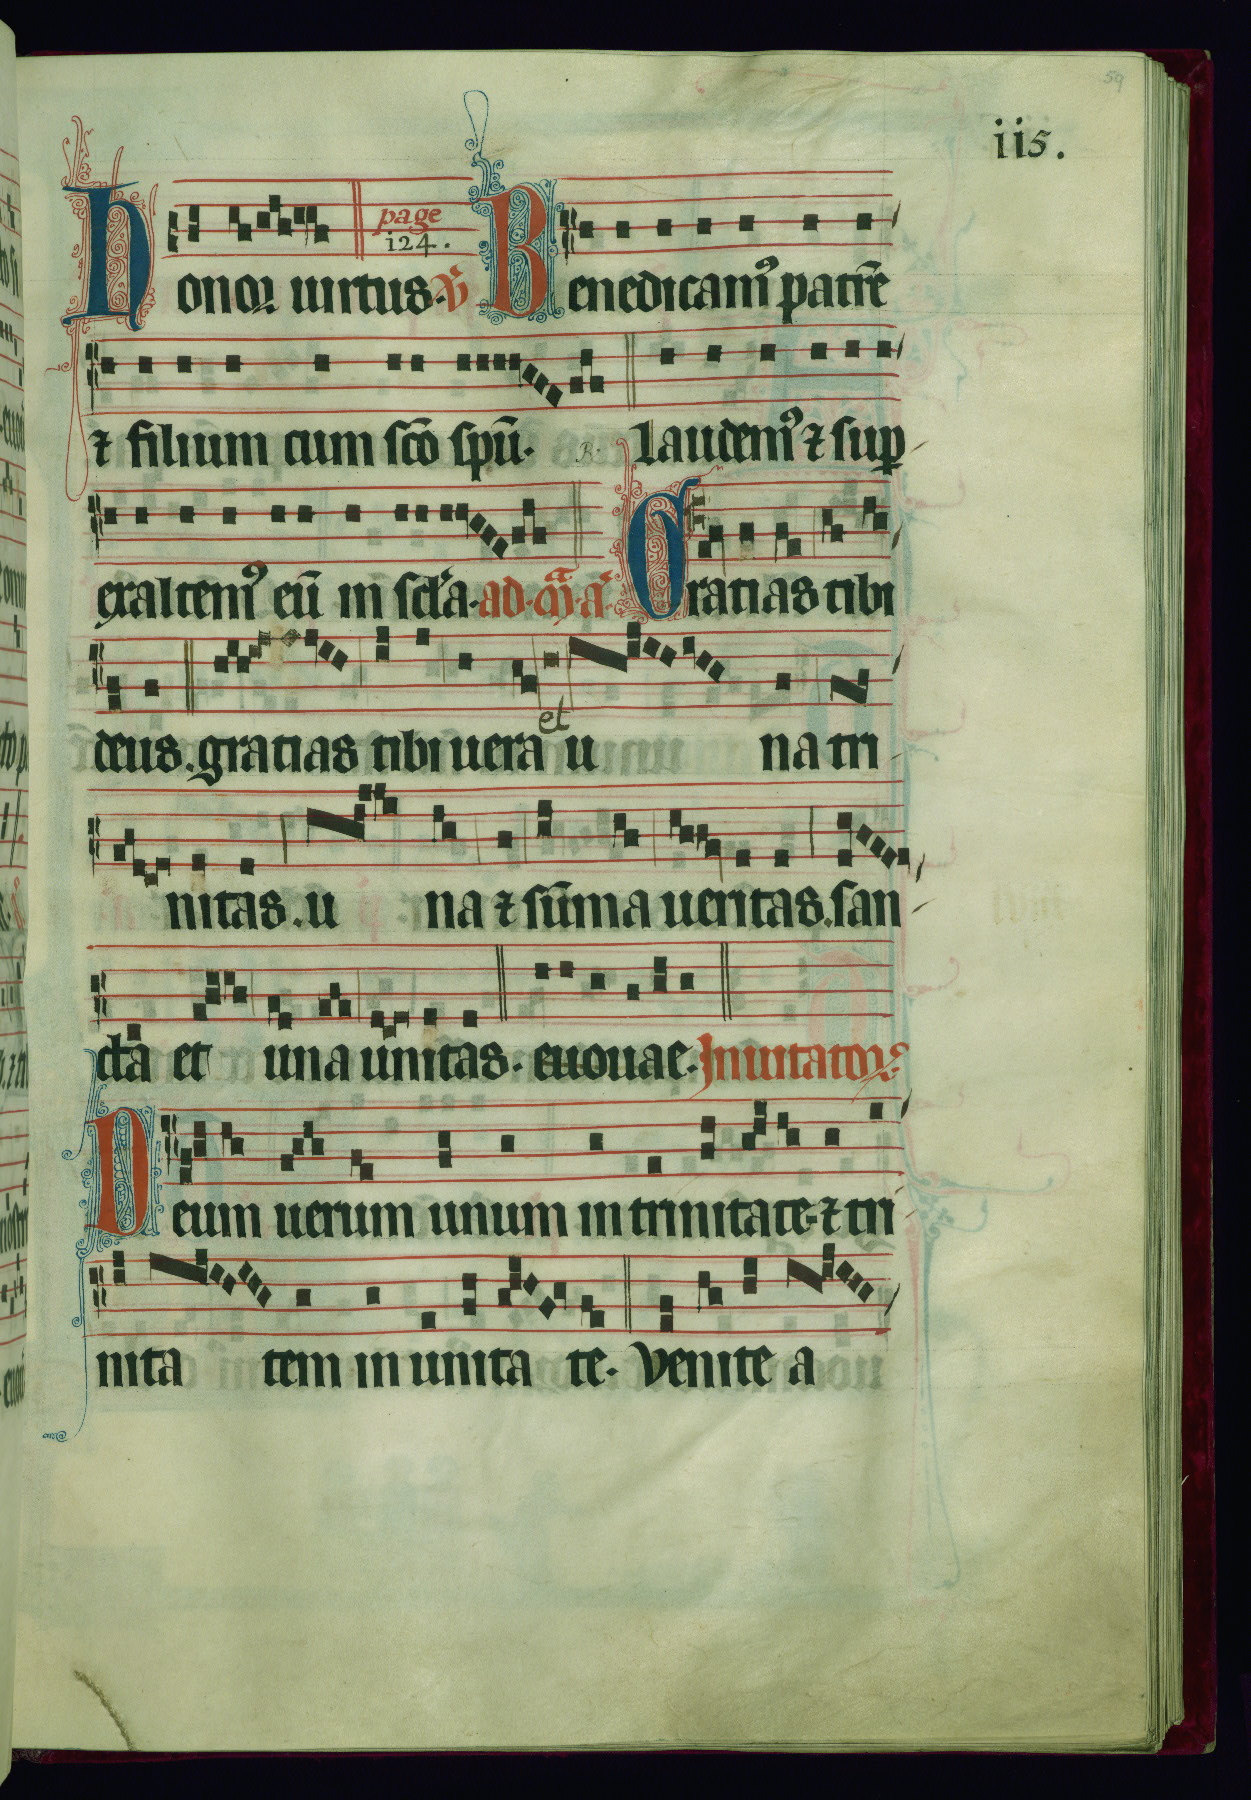 59
ii5.
page
i24.
Honor uirtus. V̄ Benedicam⁹ patrē
⁊ filium cum sc̄o sp̄u. R. Laudem⁹ ⁊ sup
exaltem⁹ eū in sc̄la. ad. m̄. a. Gratias tibi
deus. gratias tibi uera et u na tri
nitas. u na ⁊ sūma ueritas. san
cta et una unitas. euouae. Inuitator.
Deum uerum unum in trinitate. ⁊ tri
nita tem in unita te. Venite a